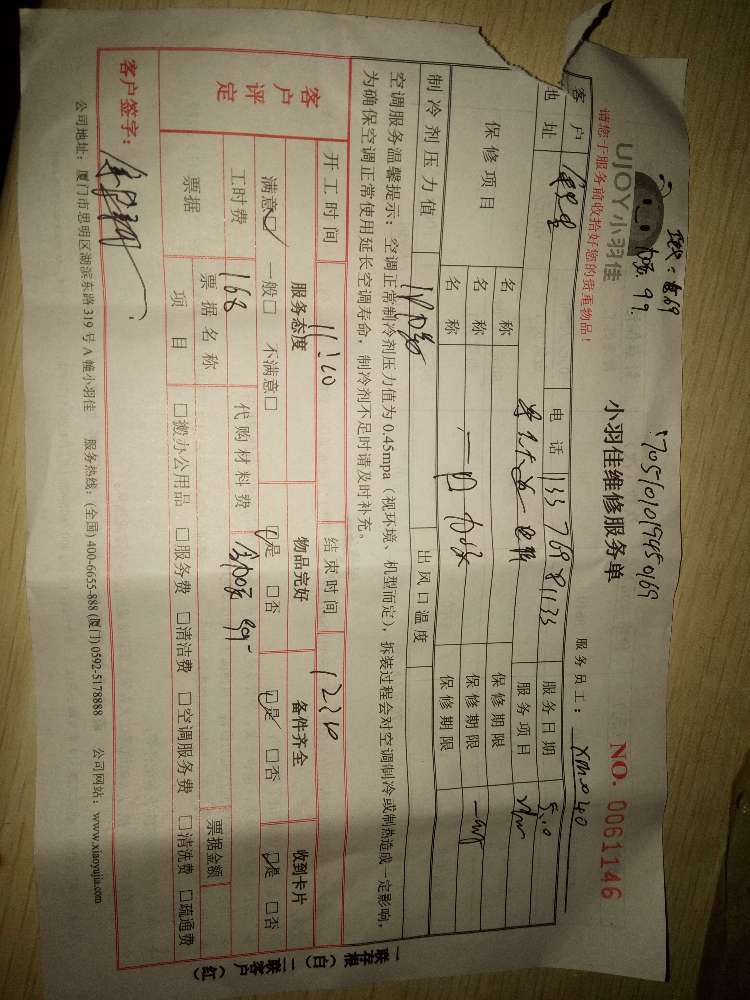 UJOY小羽佳
请您于服务前收拾好您的贵重物品！
加氟 99.
1705101019450169
小羽佳维修服务单
NO. 0061146
服务员工：xm040
客户 电话 133 769 81135 服务日期 5.10
地址 服务项目
保修项目 名称 保修期限
名称 保修期限
名称 保修期限
制冷剂压力值 出风口温度
空调服务温馨提示：空调正常制冷剂压力值为 0.45mpa（视环境、机型而定），拆装过程会对空调制冷或制热造成一定影响，
为确保空调正常使用延长空调寿命，制冷剂不足时请及时补充。
开工时间 11:20 结束时间 12:20
客户评定
服务态度 物品完好 备件齐全 收到卡片
满意□ 一般□ 不满意□ □是 □否 □是 □否 □是 □否
工时费 168 代购材料费 99-
票据 票据名称 票据金额
项目 □搬办公用品 □服务费 □清洁费 □空调服务费 □清洗费 □疏通费
客户签字：
公司地址：厦门市思明区湖滨东路 319 号 A 幢小羽佳 服务热线：(全国) 400-6655-888 (厦门) 0592-5178888 公司网站：www.xiaoyujia.com
一联存根（白） 二联客户（红）